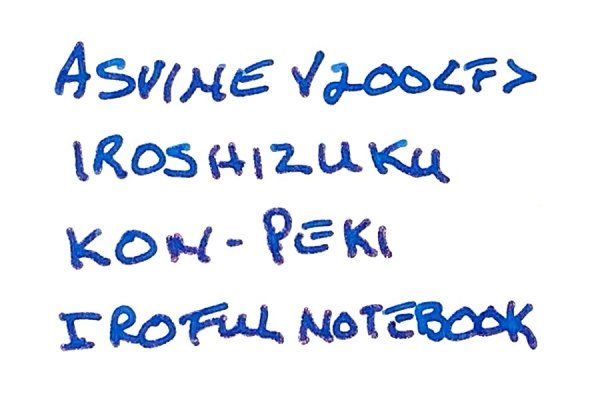 ASVINE V200<F>
IROSHIZUKU
KON-PEKI
IROFUL NOTEBOOK